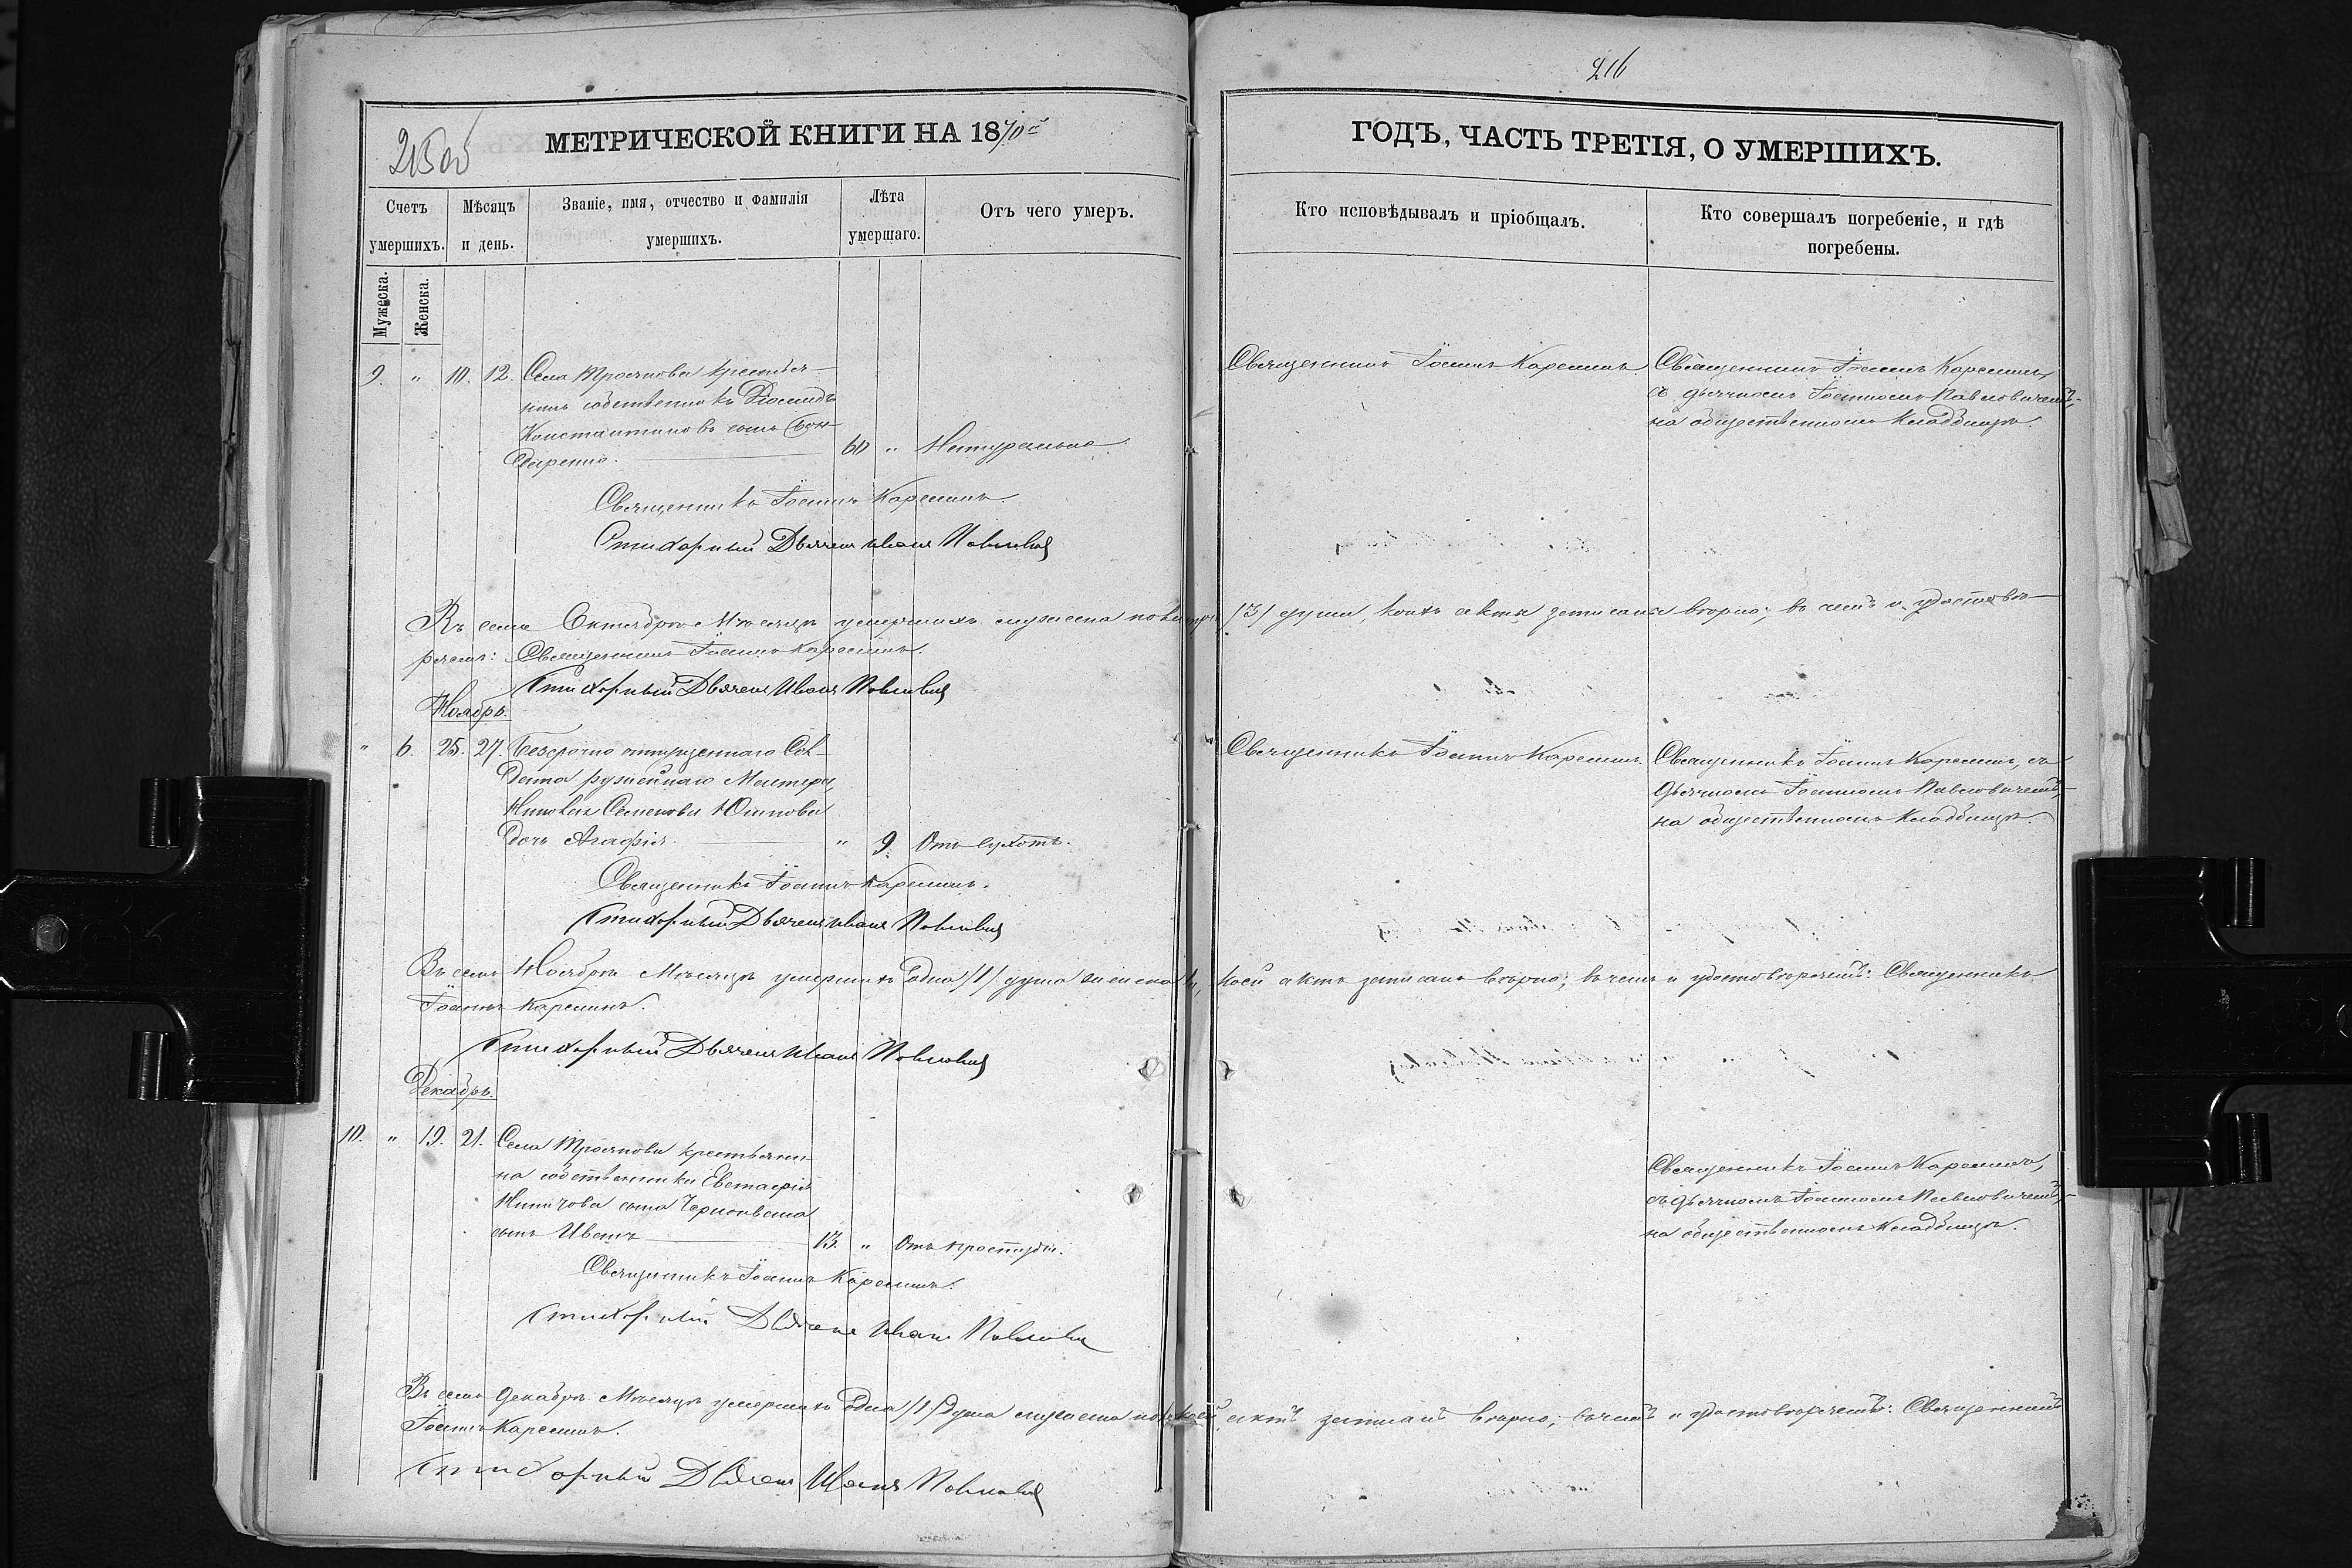 216
МЕТРИЧЕСКОЙ КНИГИ НА 1870й
ГОДЪ, ЧАСТЬ ТРЕТІЯ, О УМЕРШИХЪ.
Счетъ умершихъ.
Мѣсяцъ и день.
Званіе, имя, отчество и фамилія умершихъ.
Лѣта умершаго.
Отъ чего умеръ.
Кто исповѣдывалъ и пріобщалъ.
Кто совершалъ погребеніе, и гдѣ погребены.
Мужеска.
Женска.
9. " 10. 12. Села Троянова крестья-
нинъ собственникъ Діомидъ
Константиновъ сынъ Бон-
даренко. 60 " Натурально.
Священникъ Іоаннъ Карелинъ.
Священникъ Іоаннъ Карелинъ,
съ дьячкомъ Іоанномъ Павловичемъ,-
на общественномъ Кладбищѣ.
Священникъ Іоаннъ Карелинъ.
Стихарный Дьячекъ Иванъ Павловичъ
Въ семъ Октябрѣ Мѣсяцѣ умершихъ мужеска пола три /3/ души, коихъ акты записаны вѣрно; въ чемъ и удостовѣ-
ряемъ: Священникъ Іоаннъ Карелинъ.
Стихарный Дьячекъ Иванъ Павловичъ
Ноябрь.
" 6. 25. 27. Безсрочно отпущеннаго Сол-
дата ружейнаго Мастера,
Семенова
дочь Агафія. " 9. Отъ сухотъ.
Священникъ Іоаннъ Карелинъ.
Священникъ Іоаннъ Карелинъ, съ
дьячкомъ Іоанномъ Павловичемъ,-
на общественномъ Кладбищѣ.
Священникъ Іоаннъ Карелинъ.
Стихарный Дьячекъ Иванъ Павловичъ
Въ семъ Ноябрѣ Мѣсяцѣ умершихъ Одна /1/ душа женска п, коей актъ записанъ вѣрно; въ чемъ и удостовѣряемъ: Священникъ
Іоаннъ Карелинъ.
Стихарный Дьячекъ Иванъ Павловичъ
Декабрь.
10. " 19. 21. Села Троянова крестьяни-
на собственника Евстафія
сына
сынъ Иванъ 13. " Отъ простуды.
Священникъ Іоаннъ Карелинъ,
съ дьячкомъ Іоанномъ Павловичемъ,-
на общественномъ Кладбищѣ.
Священникъ Іоаннъ Карелинъ.
Стихарный Дьячекъ Иванъ Павловичъ
Въ семъ Декабрѣ Мѣсяцѣ умершихъ Одна /1/ душа мужеска пола, коей актъ записанъ вѣрно; въ чемъ и удостовѣряемъ: Священникъ
Іоаннъ Карелинъ.
Стихарный Дьячекъ Иванъ Павловичъ